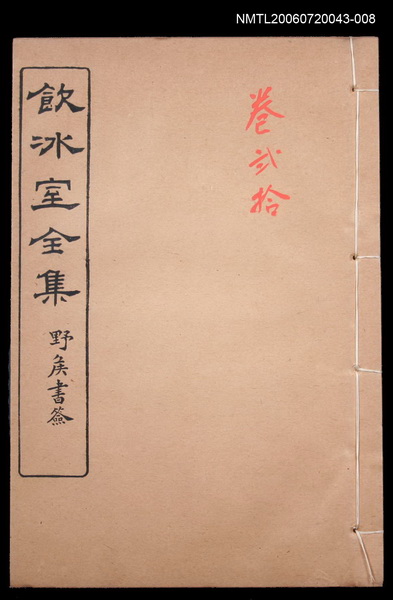 NMTL20060720043-008
卷弍拾
飲冰室全集
野矦書籤